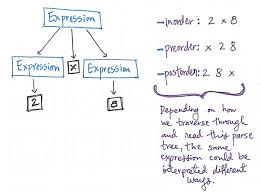 Expression
Expression
x
Expression
2
8
→inorder: 2 x 8
→preorder: x 2 8
→postorder: 2 8 x
Depending on how
we traverse through
and read this parse
tree, the same
expression could be
interpreted different
ways.